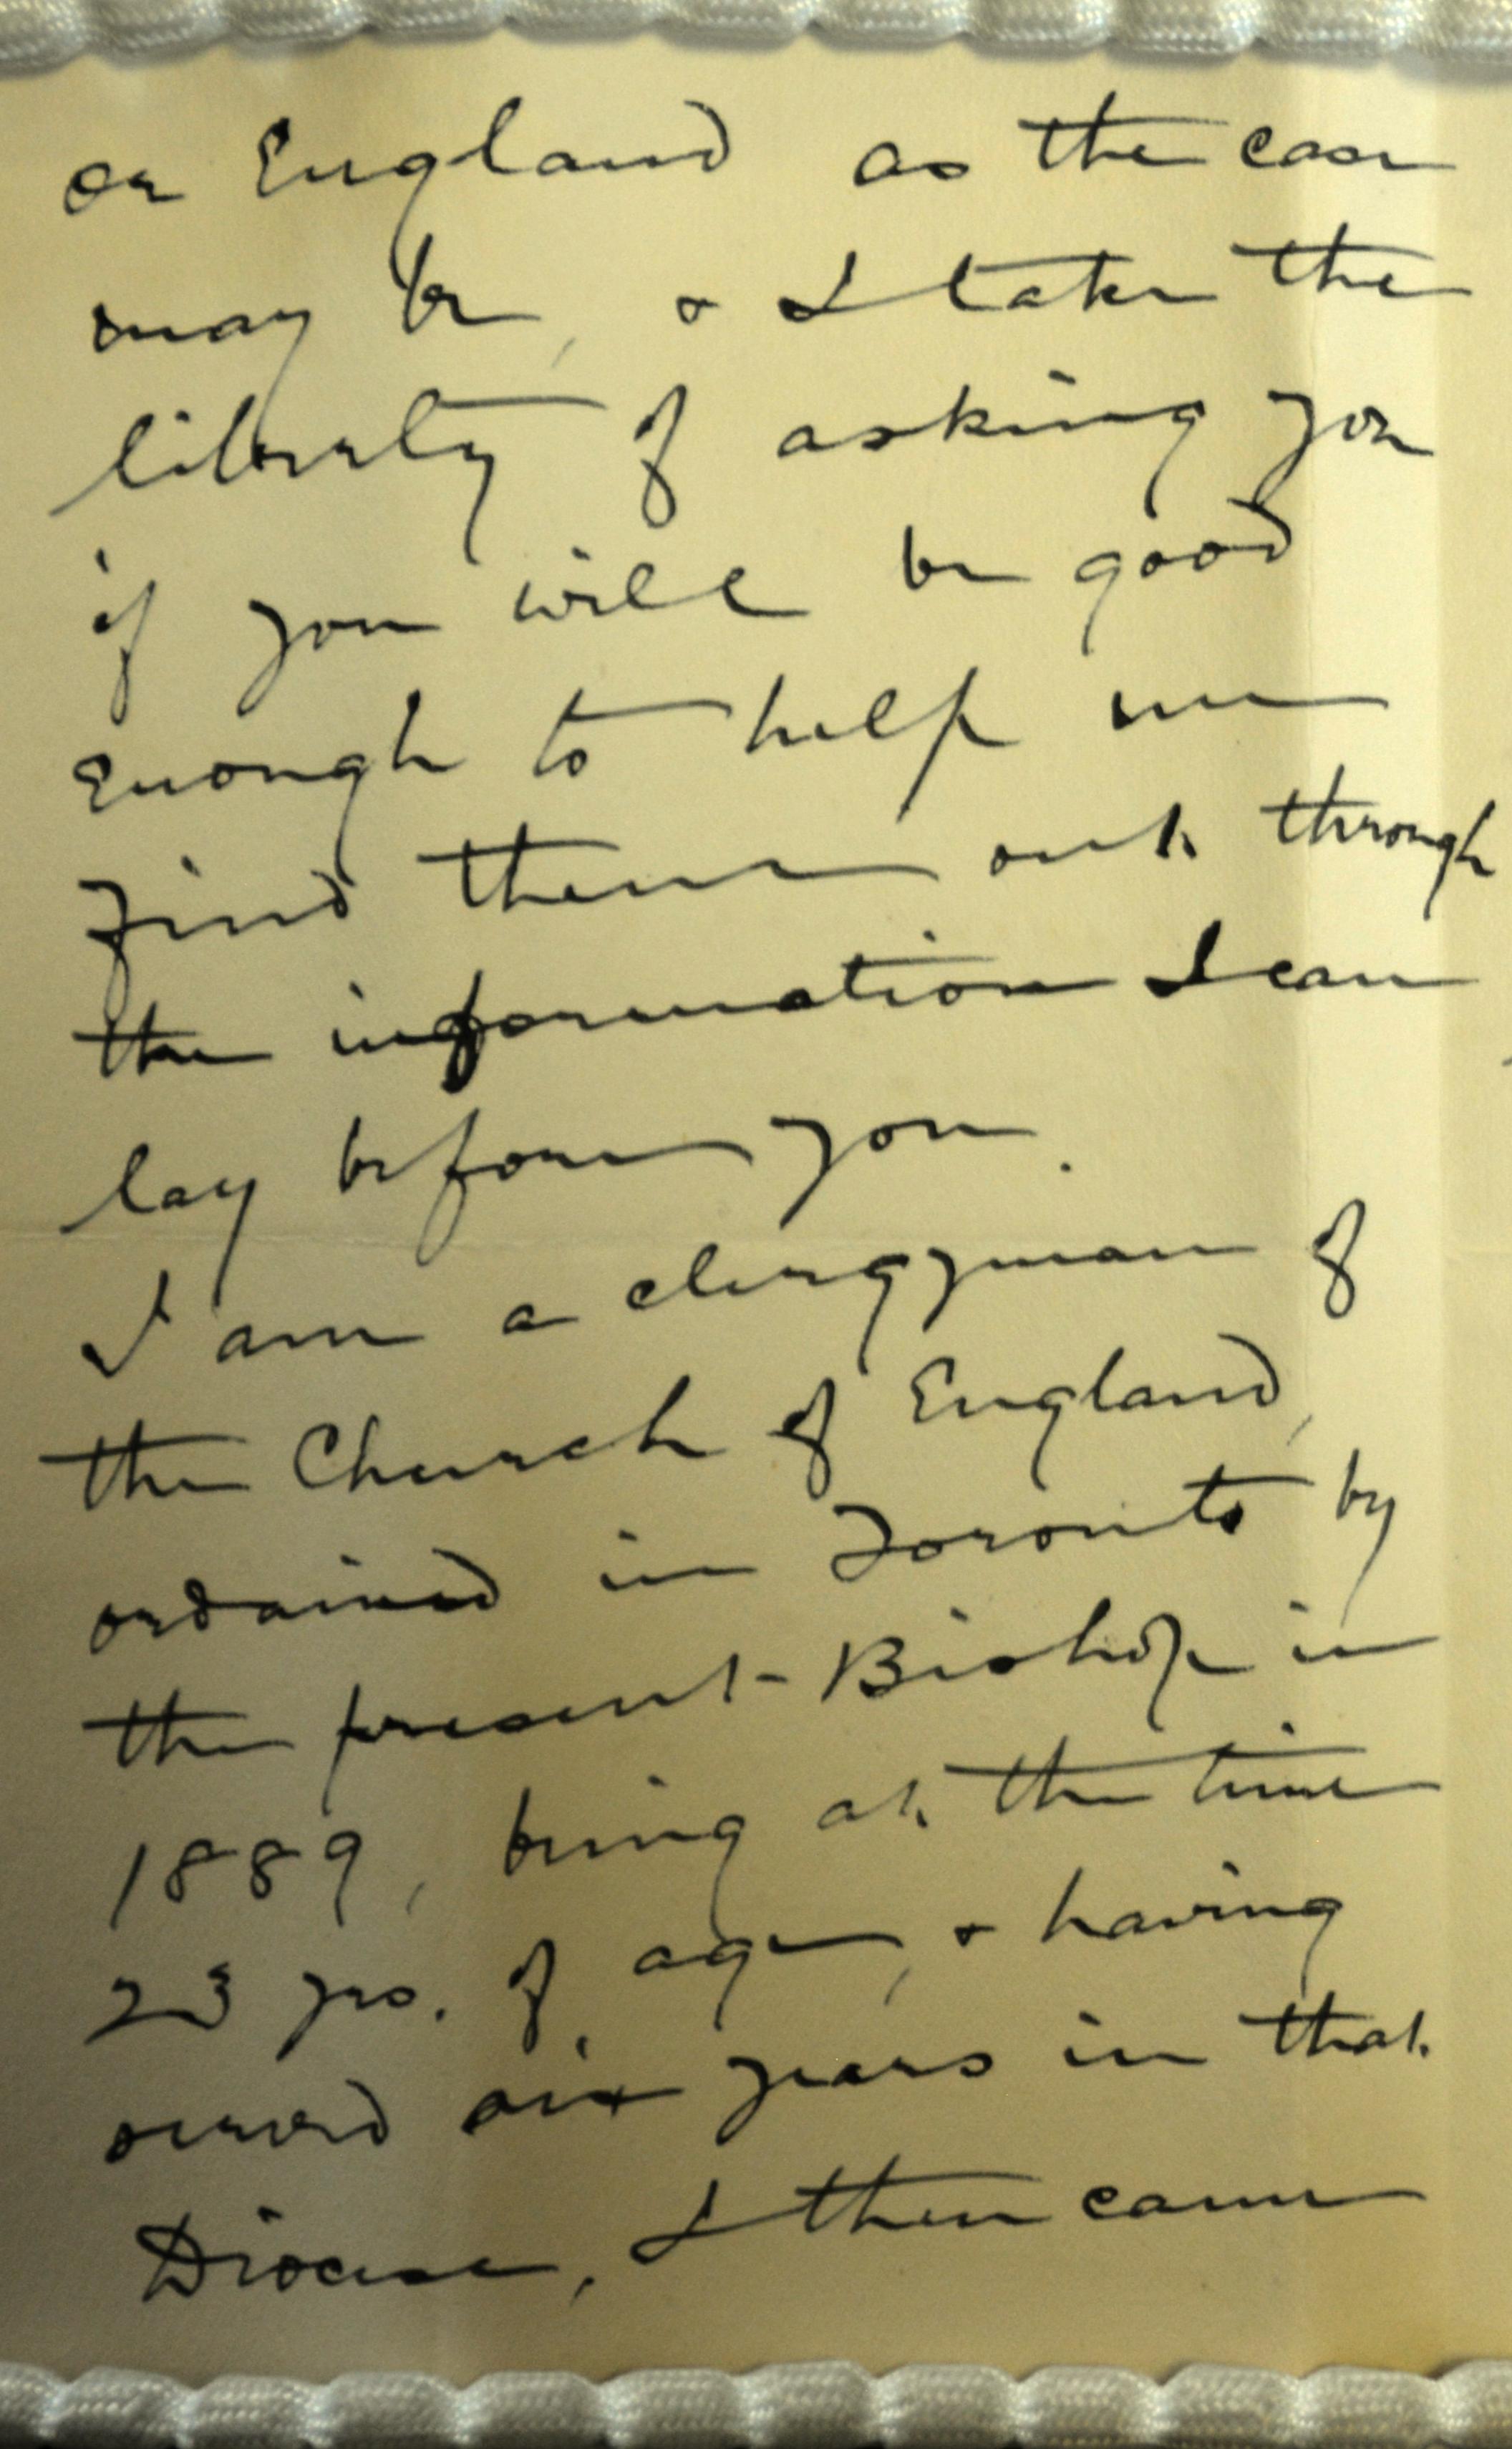 or England as the case
may be, & I take the
liberty of asking you
if you will be good
enough to help me
find them out through
the information I can
lay before you.
I am a clergyman of
the Church of England,
ordained in Toronto by
the present Bishop in
1889, being at the time
23 yrs. of age, & having
served six years in that
Diocese, I then came